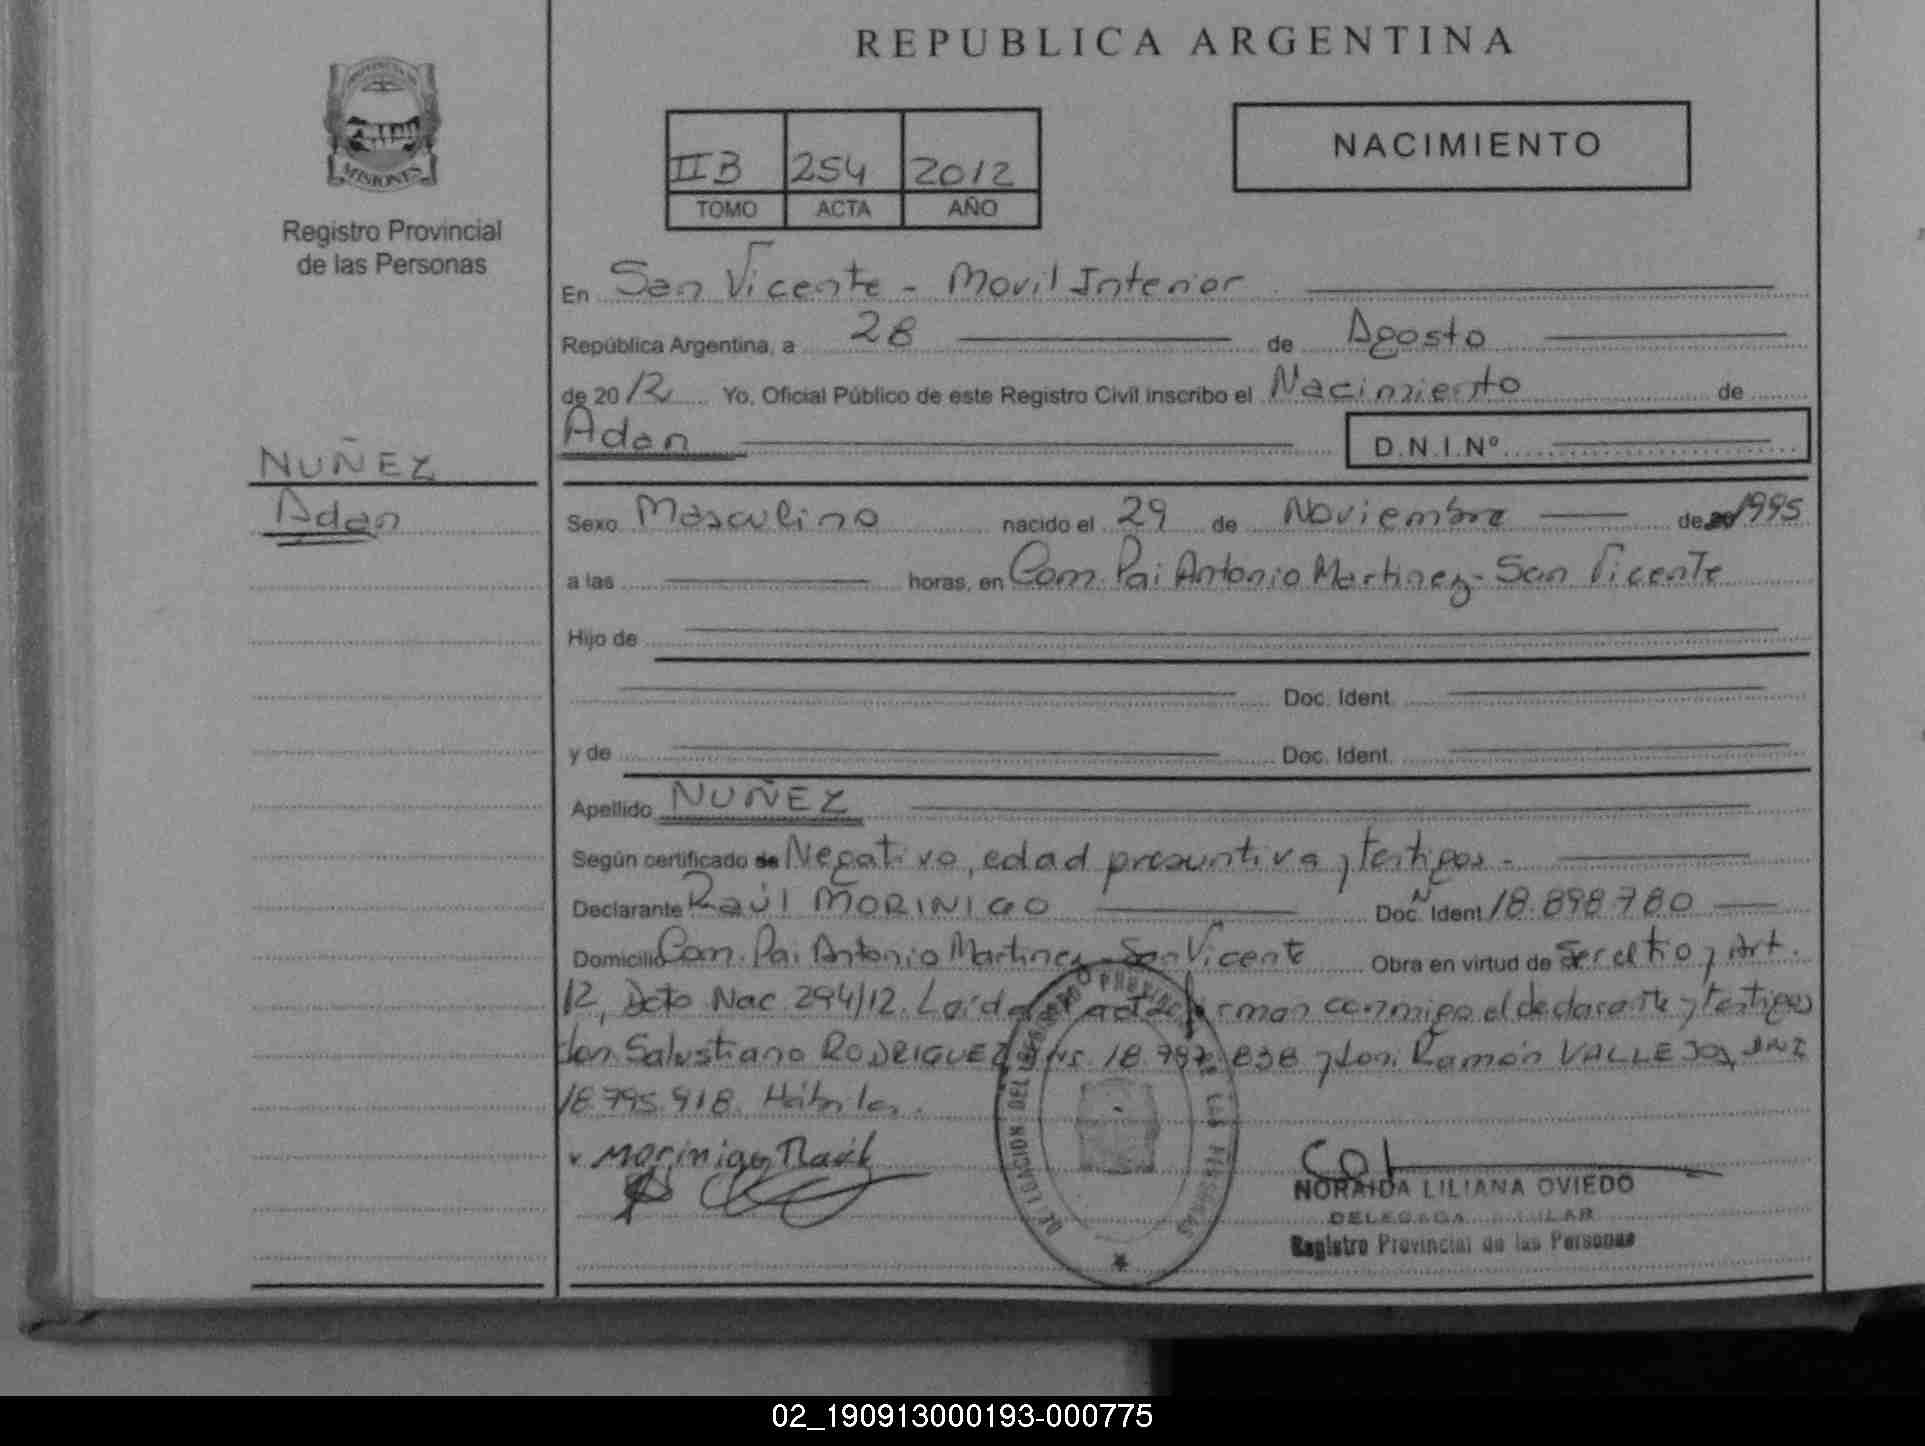 REPUBLICA ARGENTINA
PROVINCIA DE
MISIONES
Registro Provincial
de las Personas
IIB 254 2012
TOMO ACTA AÑO
NACIMIENTO
En San Vicente - Movil Interior
República Argentina, a 28 de Agosto
de 2012 Yo, Oficial Público de este Registro Civil inscribo el Nacimiento de
Adan D.N.I.Nº
NUÑEZ
Adan
Sexo Masculino nacido el 29 de Noviembre de 1995
a las horas, en Com. Pai Antonio Martinez - San Vicente
Hijo de
Doc. Ident.
y de Doc. Ident.
Apellido NUÑEZ
Según certificado de Negativo, edad presuntiva y testigos -
Declarante Raúl MORINIGO Doc. Ident N 18.898.780
Domicilio Com. Pai Antonio Martinez - San Vicente Obra en virtud de y Art.
12, Dcto Nac 294/12. Leída el acta firman conmigo el declarante y testigos
don Salustiano RODRIGUEZ 18.787.838 y don Ramón VALLEJOS, DNI
18.795.918. Hábiles.
Morinigo Raúl
DELEGACION DEL REGISTRO PROVINCIAL DE LAS PERSONAS
NORAIDA LILIANA OVIEDO
DELEGADA TITULAR
Registro Provincial de las Personas
02_190913000193-000775